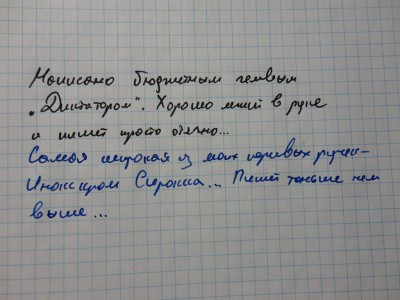 Написано бюджетным гелевым
„Диктатором". Хорошо лежит в руке
и пишет просто обычно...
Самая широкая из моих перьевых ручек-
Инокскром Сирокка... Пишет тоньше чем
выше...